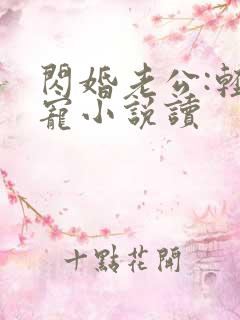 閃婚老公:輕
寵小説讀
十點花開